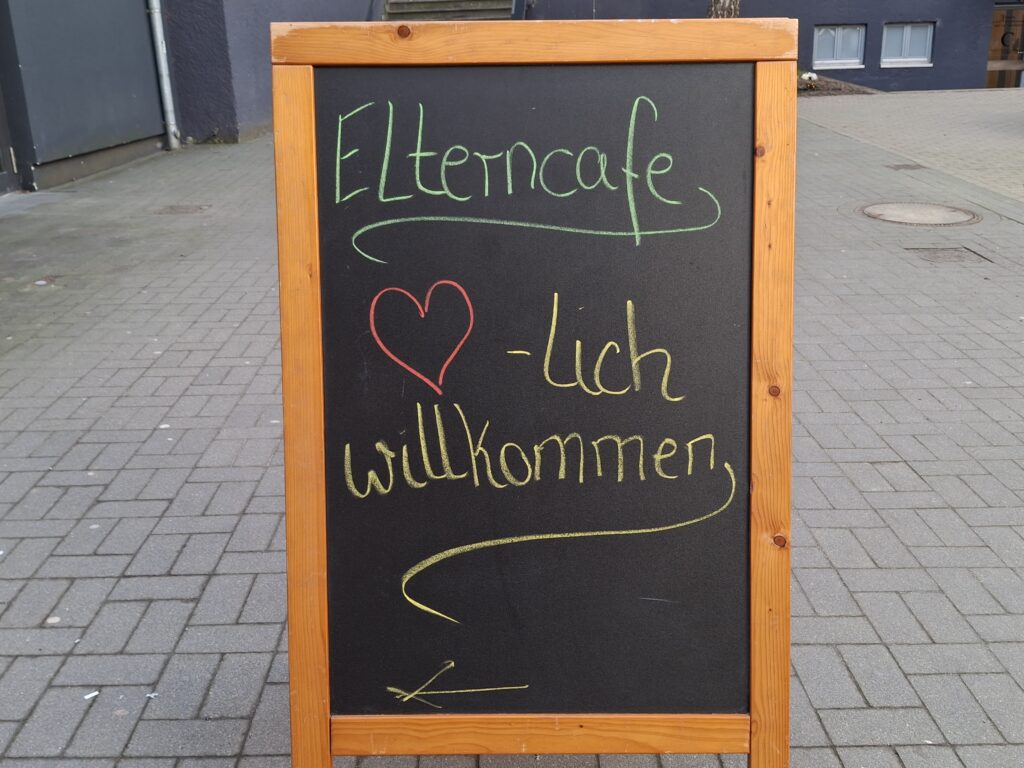 Elterncafe
-lich
willkommen